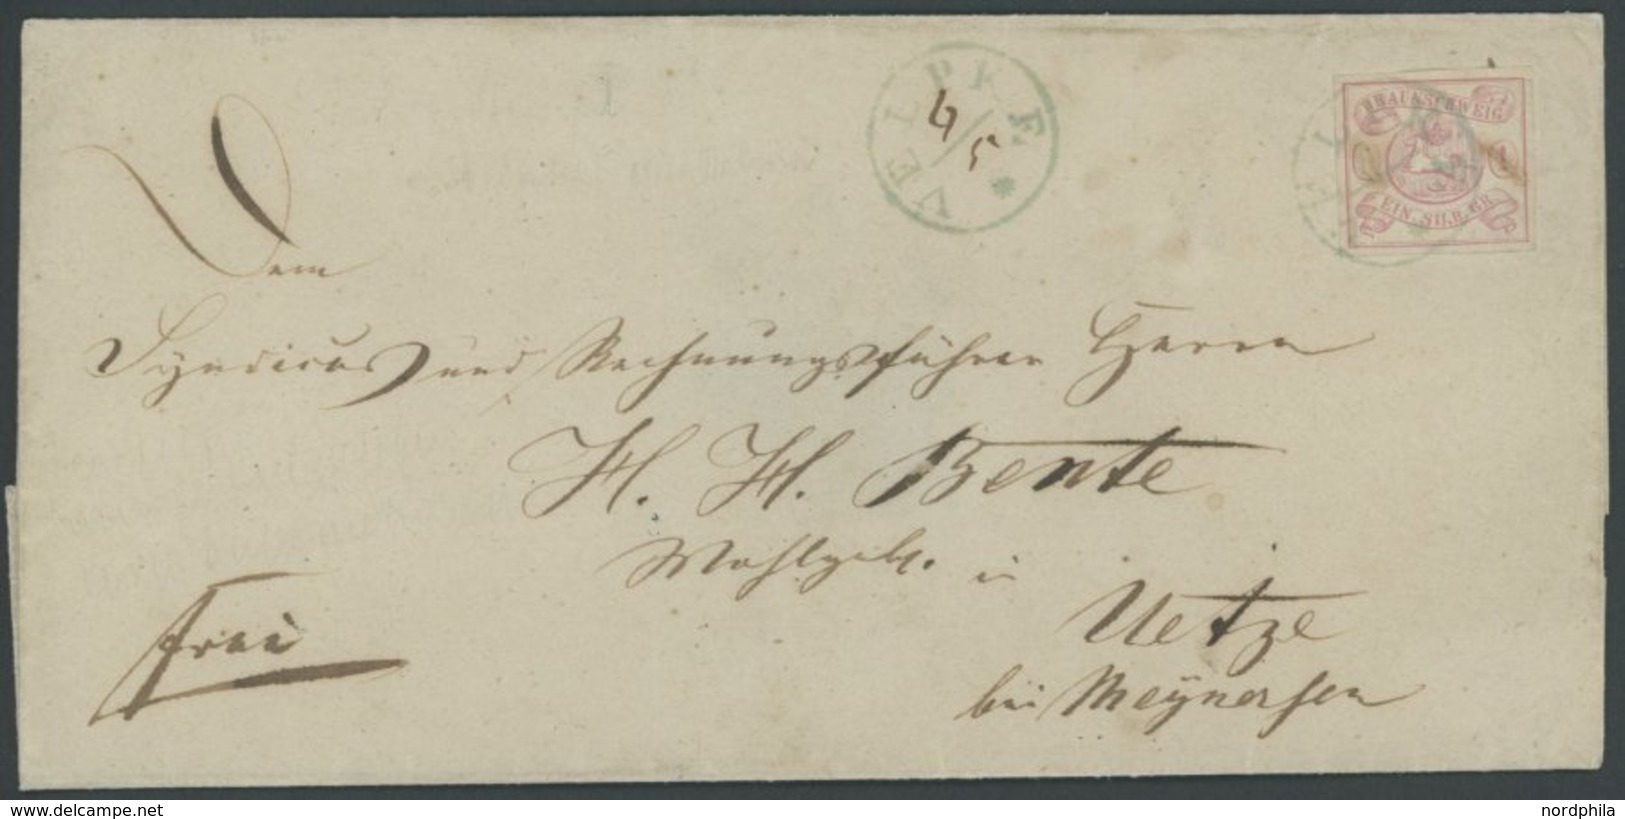 VELPKE *
4/5
BRAUNSCHWEIG
1
EIN. SILB. GR.
Dem
Syndicus und Rechnungsführer Herrn
H. H. Bente
Wohlgeb. in
Uetze
bei Meynersen
Frei
www.delcampe.net
nordphila